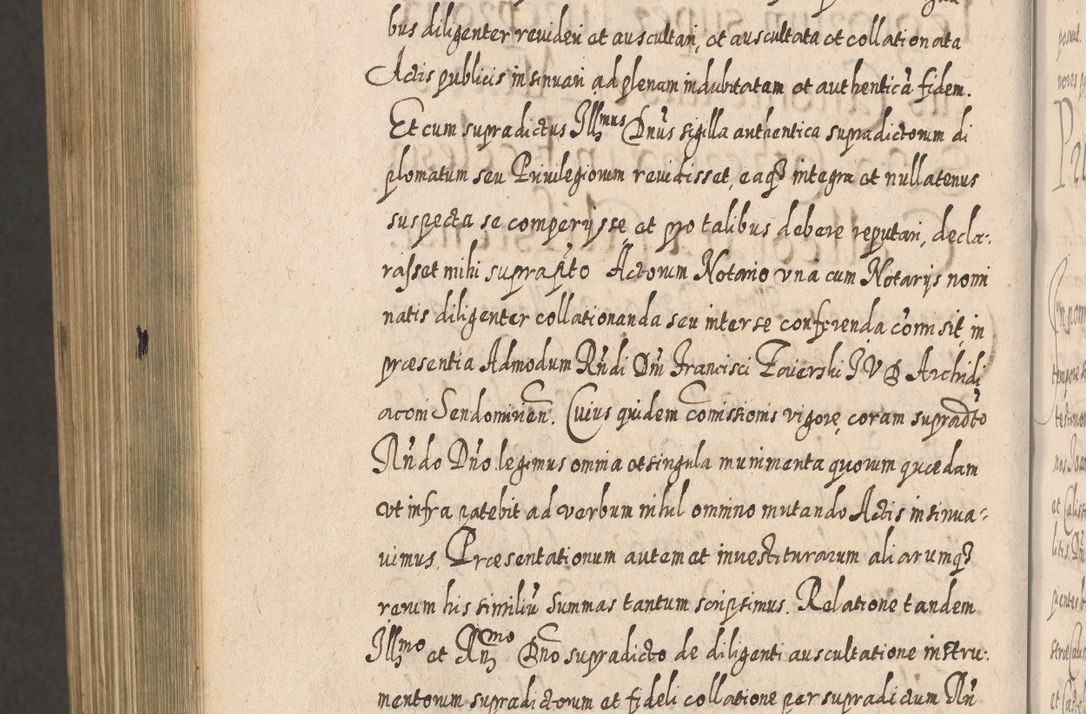 bus diligenter revideri et auscultari, et auscultata et collationata
Actis publicis insinuari ad plenam indubitatam et authenticã fidem.
Et cum supradictus Illmus Dnus sigilla authentica supradictorum di
plomatum seu Privilegiorum revidisset, eaq3 integra et nullatenus
suspecta se comperijsse et pro talibus debere reputari, decla-
rasset mihi suprapto Actorum Notario una cum Notarijs nomi
natis diligenter collationanda seu inter se conferenda comisit, in
præsentia Admodum Rndi Dni Francisci I V D Archidi
aconi Sendomirien. Cuius quidem comissionis vigore, coram supradto
Rndo Dno legimus omnia et singula munimenta quorum quædam
ut infra patebit ad verbum nihil omnino mutando Actis insinua-
vimus. Præsentationum autem et investiturarum aliarumq3
rerum his similiũ summas tantum scripsimus. Relatione tandem
Illmo et Rmo Dno supradicto de diligenti auscultatione instru-
mentorum supradictorum et fideli collatione per supradictum Rn